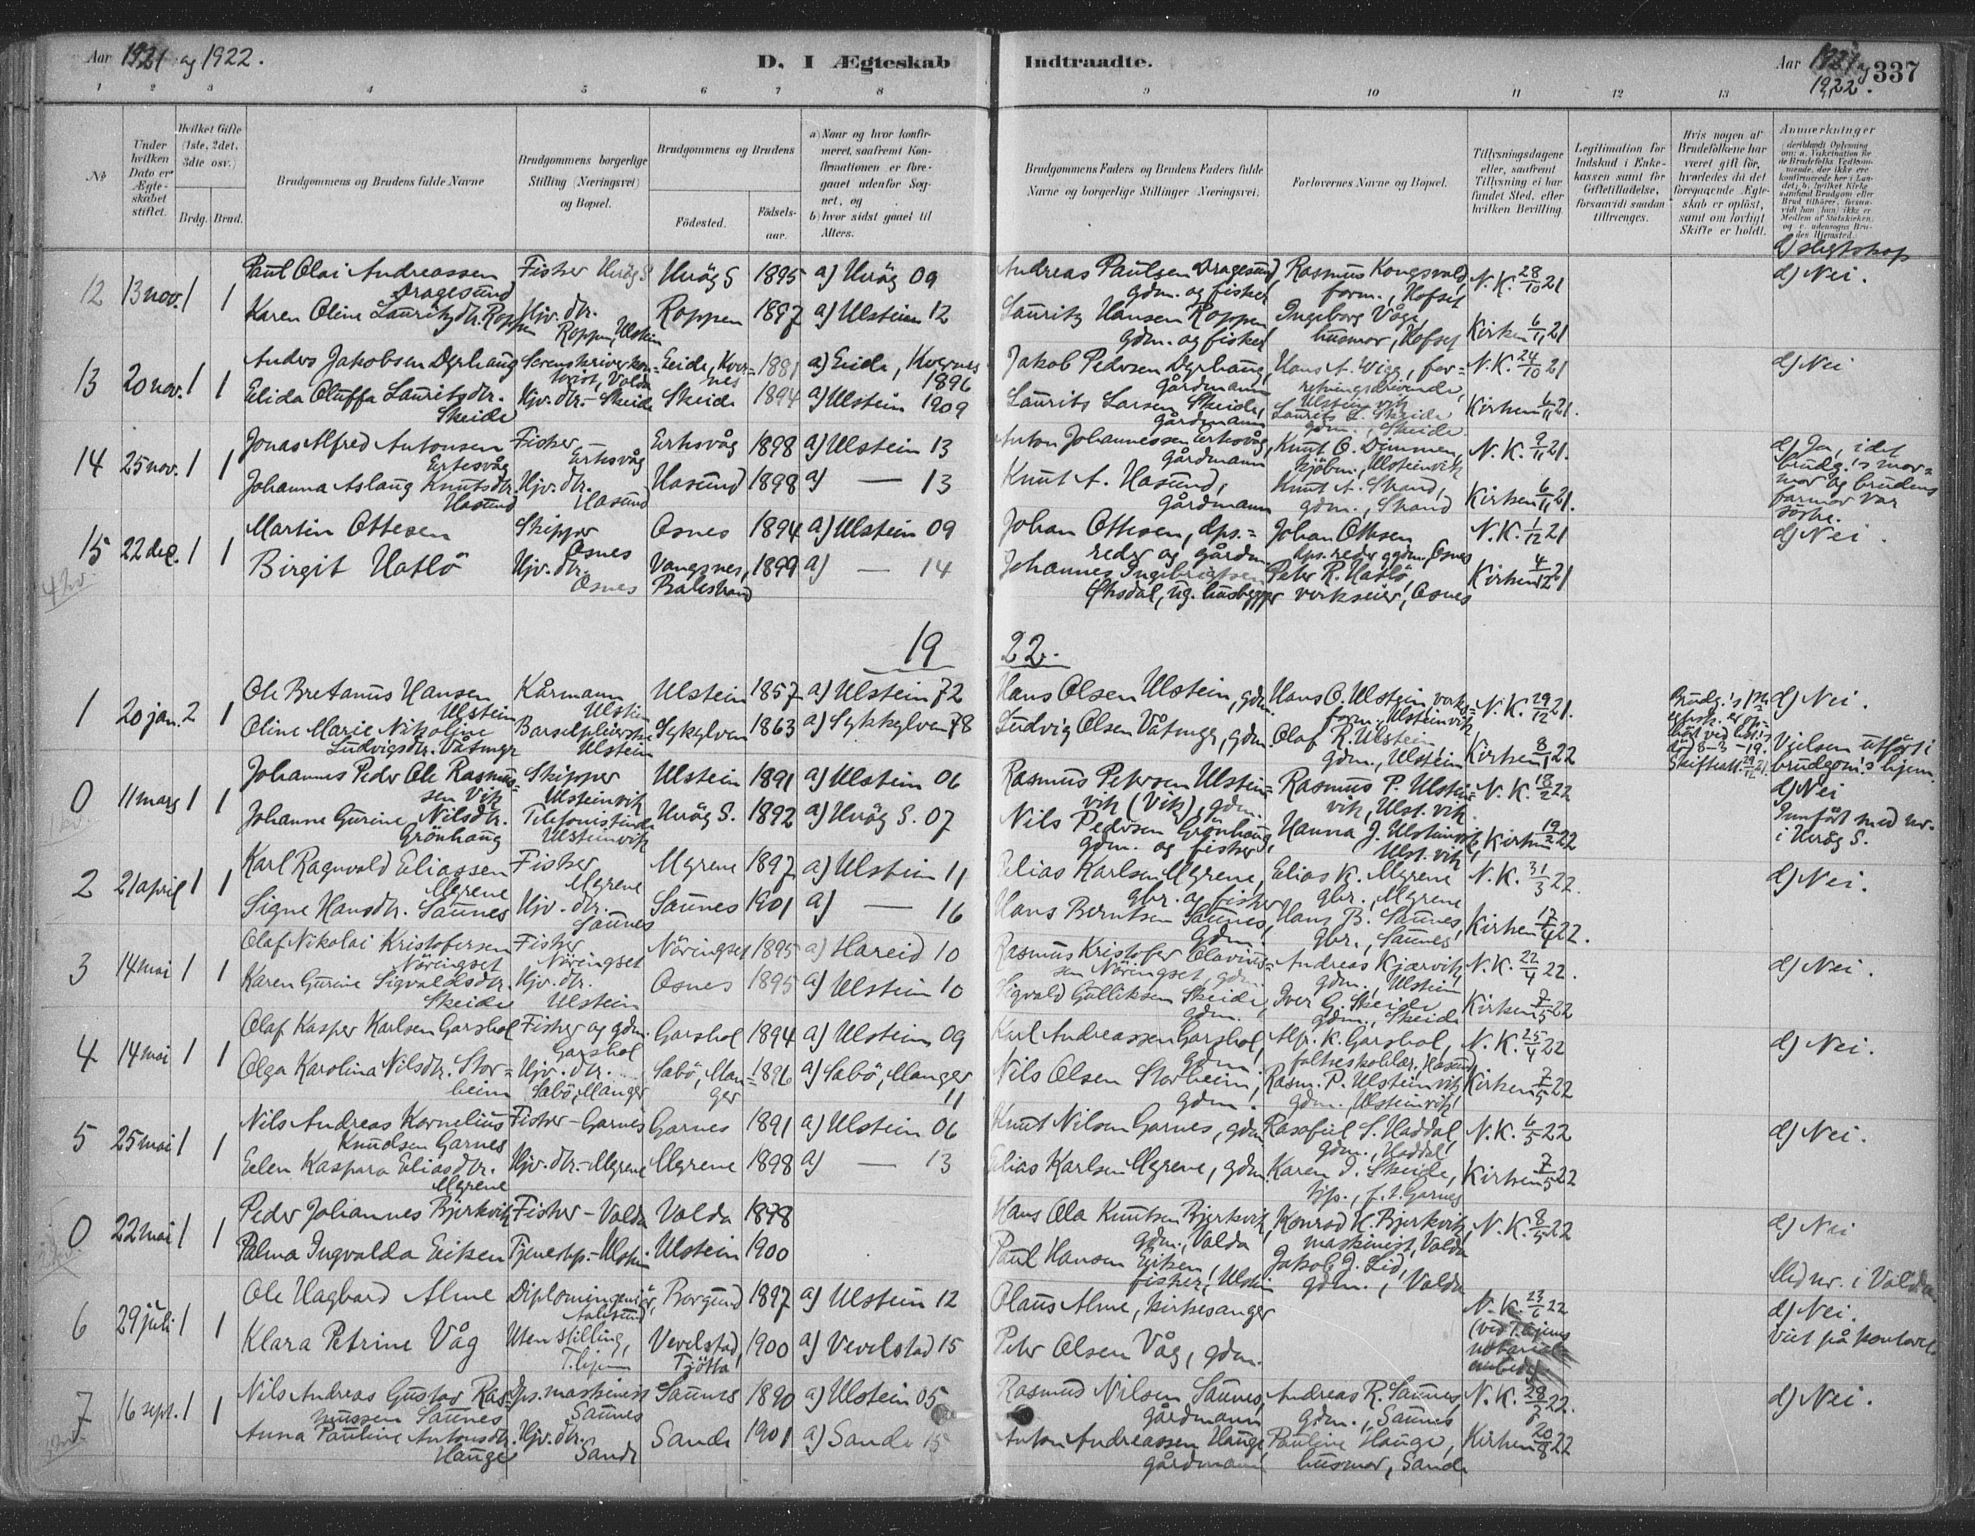 Aar 1921 og 1922.
D. I Ægteskab
Indtraadte.
Aar 1921 og 1922.
337
1 2 3 4 5 6 7 8 9 10 11 12 13
No.
Under hvilken Dato er Ægteskabet stiftet.
Hvilket Gifte (1ste, 2det, 3die osv.)
Brdg. Brud.
Brudgommens og Brudens fulde Navne
Brudgommens borgerlige Stilling (Næringsvei) og Bopæl.
Brudgommens og Brudens
Fødested. Fødselsaar.
a) Naar og hvor konfirmeret, saafremt Konfirmationen er foregaaet udenfor Sognet, og
b) hvor sidst gaaet til Alters.
Brudgommens Faders og Brudens Faders fulde Navne og borgerlige Stillinger (Næringsvei).
Forlovernes Navne og Bopæl.
Tillysningsdagene eller, saafremt Tillysning ei har fundet Sted, efter hvilken Bevilling.
Legitimation for Indskud i Enkekassen samt for Giftetilladelse, forsaavidt saadan tiltrænges.
Hvis nogen af Brudefolkene har været gift før, hvorledes da det foregaaende Ægteskab er opløst, samt om lovligt Skifte er holdt.
Anmærkninger
d) slegtskap
12 13 nov. 1 1 Paul Olai Andreassen Dragesund Fisker Herøy S Herøy S 1895 a) Herøy 09 Andreas Paulsen Dragesund, gdm. og fisker Rasmus Kongsvold, form., Hofset N.K. 28/10 21 d) Nei.
Karen Oline Lauritzdtr. Roppen Hjv. dtr. Roppen, Ulstein Roppen 1897 a) Ulstein 12 Lauritz Hansen Roppen gdm. og fisker Ingeborg Våge, husmor, Hofset Kirken 6/11 21
13 20 nov. 1 1 Anders Jakobsen Dyrhaug Sorenskriverkontorist, Volda Eeide, Kvernes 1881 a) Eeide, Kvernes 1896 Jakob Pedersen Dyrhaug, gårdmann Hans A. Wiig, forretningsdrivende, Ulsteinvik N.K. 24/10 21 d) Nei
Elida Oluffa Lauritsdtr. Skeide Hjv. dtr. - Skeide Skeide 1894 a) Ulstein 1909 Laurits Larsen Skeide, gårdmann Laurits L. Skeide gdm., Skeide Kirken 6/11 21.
14 25 nov. 1 1 Jonas Alfred Antonsen Erkesvåg Fisker - Erksvåg Erksvåg 1898 a) Ulstein 13 Anton Johannessen Erksvåg, gårdmann Knut O. Dimmen, kjøbm., Ulsteinvik N.K. 9/11 21. d) Ja, idet brudg.'s mormor og brudens farmor var søstre.
Johanna Aslaug Knutsdtr. Hasund Hjv. dtr. Hasund Hasund 1898 a) — 13 Knut A. Hasund, gårdmann Knut A. Strand, gdm., Strand Kirken 6/11 21.
15 22 des. 1 1 Martin Ottesen Skipper Osnes Osnes 1894 a) Ulstein 09 Johan Ottesen, dps.reder og gårdm. Johan Ottesen dps.reder og gdm. Osnes N.K. 1/12 21 d) Nei.
Birgit Hatlö Hjv. dtr. Osnes Vangsnes, Balestrand 1899 a) — 14 Johannes Ingebrigtsen Ørsdal, ug. husbygger Peter R. Hatlö, verkseier, Osnes Kirken 4/12 21
19 22.
1 20 jan. 2 1 Ole Bretanus Hansen Ulstein Kårmann Ulstein Ulstein 1857 a) Ulstein 72 Hans Olsen Ulstein, gdm. Hans O. Ulstein verksform., Ulsteinvik N.K. 29/12 21. d) Nei.
Oline Marie Nikoline Ludvigsdtr. Våtmyr Barselpleierske Ulstein Sykylven 1863 a) Sykkylven 78 Ludvig Olsen Våtmyr, gdm. Olaf R. Ulstein gdm., Ulstein Kirken 8/1 22 Vielsen utført i brudgom.'s hjem.
0 11 mars 1 1 Johannes Peder Ole Rasmussen Vik Skipper Ulsteinvik Ulstein 1891 a) Ulstein 06 Rasmus Petersen Ulsteinvik (Vik), gdm. Rasmus P. Ulsteinvik, Ulst.vik. N.K. 18/2 22 d) Nei
Johanne Gurine Nilsdtr. Grönhaug Telefonistinde Ulsteinvik Herøy S. 1892 a) Herøy S. 07 Nils Pedersen Grönhaug, gdm. og fisker Hanna J. Ulsteinvik, Ulst.vik Kirken 19/2 22 Innfört med nr. i Herøy S.
2 21 april 1 1 Karl Ragnvald Eliassen Myrene Fisker Myrene Myrene 1897 a) Ulstein 11 Elias Karlsen Myrene, gbr. og fisker Elias K. Myrene gbr., Myrene N.K. 31/3 22. d) Nei.
Signe Hansdtr. Saunes Hjv. dtr. Saunes Saunes 1901 a) — 16 Hans Berntsen Saunes, gdm. Hans B. Saunes, gbr., Saunes Kirken 17/4 22.
3 14 mai 1 1 Olaf Nikolai Kristofersen Nöringset Fisker Nöringset Nöringset 1895 a) Hareid 10 Rasmus Kristofer Olavinussen Nöringset, gdm. Andreas Kjærvik, gdm., Ulstein N.K. 22/4 22. d) Nei.
Karen Gurine Sigvaldsdtr. Skeide Hjv. dtr. Ulstein Osnes 1895 a) Ulstein 10 Sigvald Gulliksen Skeide, gdm. Iver G. Skeide gdm., Skeide Kirken 7/5 22
4 14 mai 1 1 Olaf Kasper Karlsen Garshol Fisker og gdm. Garshol Garshol 1894 a) Ulstein 09 Karl Andreassen Garshol, gdm. Alfr. K. Garshol, folkeskolelær., Hasund N.K. 25/4 22 d) Nei.
Olga Karolina Nilsdtr. Storheim Hjv. dtr. Sabö, Manger Sabö, Manger 1896 a) Sabö, Manger 11 Nils Olsen Storheim, gdm. Rasm. P. Ulsteinvik gdm. Ulsteinvik Kirken 7/5 22
5 25 mai 1 1 Nils Andreas Kornelius Knudsen Garnes Fisker - Garnes Garnes 1891 a) Ulstein 06 Knut Nilsen Garnes, gdm. Rasafiel S. Haddal, gdm., Haddal N.K. 6/5 22 d) Nei.
Eelen Kaspara Eliasdtr. Myrene Hjv. dtr. - Myrene Myrene 1898 a) — 13 Elias Karlsen Myrene, gdm. Karen J. Skeide, tjp., f.t. Garnes Kirken 7/5 22
0 22 mai 1 1 Peder Johannes Bjerkvik Fisker - Volda Volda 1878 Hans Ola Knutsen Bjerkvik, gdm., Volda Konrad K. Bjerkvik, maskinist, Volda N.K. 8/5 22 d) Nei
Palma Ingvalda Eiken Tjenestep. - Ulstein Ulstein 1900 Paul Hansen Eiken, fisker, Ulstein Jakob J. Lid, gdm., Volda Med nr. i Volda
6 29 juli 1 1 Ole Hagbard Alme Diplomingeniör, Aalesund Borgund 1897 a) Ulstein 12 Olaus Alme, kirkesanger N.K. 23/6 22 d) Nei.
Klara Petrine Våg Uten stilling, Thjem Vevelstad, Tjötta 1900 a) Vevelstad 15 Peter Olsen Våg, gdm. Viet på kontoret
7 16 sept. 1 1 Nils Andreas Gustav Rasmussen Saunes Dps. maskinist Saunes Saunes 1890 a) Ulstein 05 Rasmus Nilsen Saunes, gårdmann Andreas R. Saunes, gdm., Saunes N.K. 28/7 22. d) Nei.
Anna Pauline Antonsdtr. Hauge Hjv. dtr. Sande Sande 1901 a) Sande 15 Anton Andreassen Hauge gårdmann Pauline Hauge, husmor, Sande Kirken 20/8 22